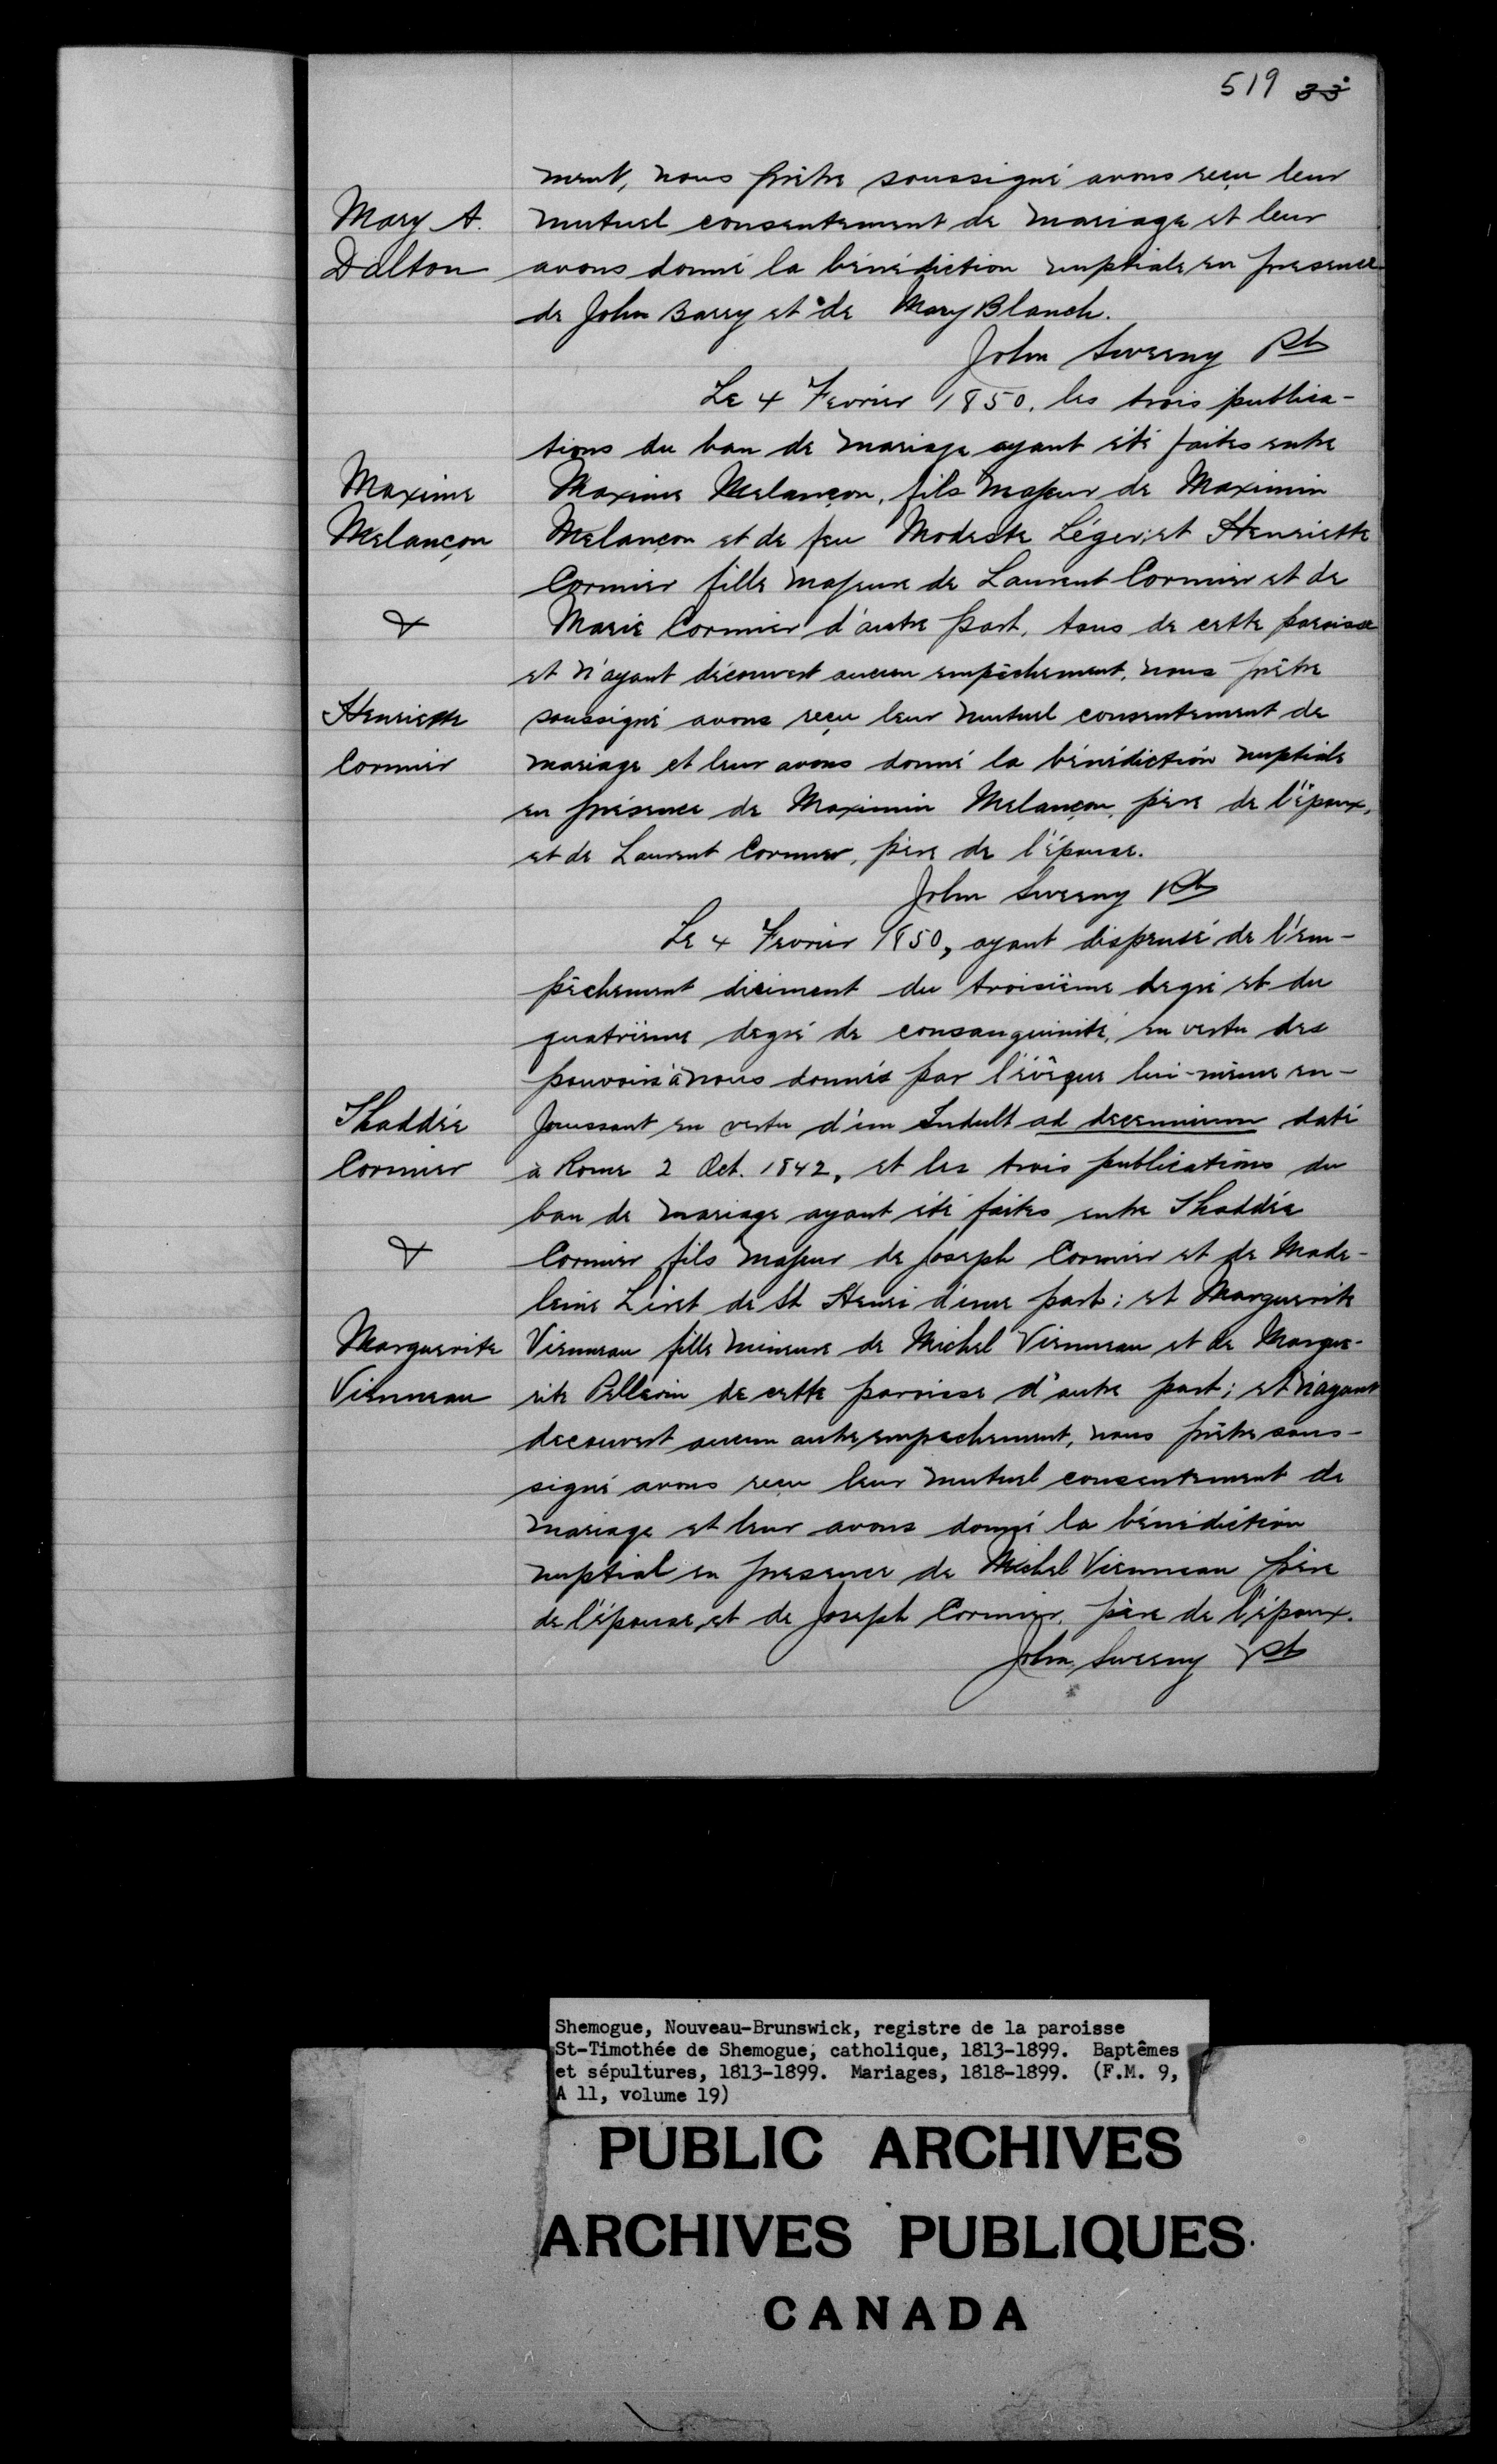 519 33
ment, nous prêtre soussigné avons reçu leur
Mary A. mutuel consentement de mariage et leur
Dalton avons donné la bénédiction nuptiale en presence
de John Barry et de Mary Blanch.
John Sweeny Pt
Le 4 Fevrier 1850, les trois publica-
tions du ban de mariage ayant été faites entre
Maxime Maxime Melançon, fils majeur de Maximin
Melançon Melançon et de feu Modeste Léger; et Henriette
Cormier fille majeure de Laurent Cormier et de
& Marie Cormier d'autre part, tous de cette paroisse
et n'ayant découvert aucun empêchement, nous prêtre
Henriette soussigné avons reçu leur mutuel consentement de
Cormier mariage et leur avons donné la bénédiction nuptiale
en présence de Maximin Melançon, père de l'époux,
et de Laurent Cormier, père de l'épouse.
John Sweeny Pt
Le 4 Fevrier 1850, ayant dispensé de l'em-
pêchement diriment du troisième degré et du
quatrième degré de consanguinité, en vertu des
pouvoirs à nous donnés par l'évêque lui-même en-
Thaddée jouissant en vertu d'un Indult ad decennium daté
Cormier à Rome 2 Oct. 1842, et les trois publications du
ban de mariage ayant été faites entre Thaddée
& Cormier fils majeur de Joseph Cormier et de Made-
leine Liret de St Henri d'une part; et Marguerite
Marguerite Vienneau fille mineure de Michel Vienneau et de Margue-
Vienneau rite Pellerin de cette paroisse d'autre part; et n'ayant
decouvert aucun autre empechement, nous prêtre sous-
signé avons reçu leur mutuel consentement de
mariage et leur avons donné la bénédiction
nuptial en presence de Michel Vienneau père
de l'épouse, et de Joseph Cormier, père de l'époux.
John Sweeny Pt
Shemogue, Nouveau-Brunswick, registre de la paroisse
St-Timothée de Shemogue, catholique, 1813-1899. Baptêmes
et sépultures, 1813-1899. Mariages, 1818-1899. (F.M. 9,
A 11, volume 19)
PUBLIC ARCHIVES
ARCHIVES PUBLIQUES
CANADA